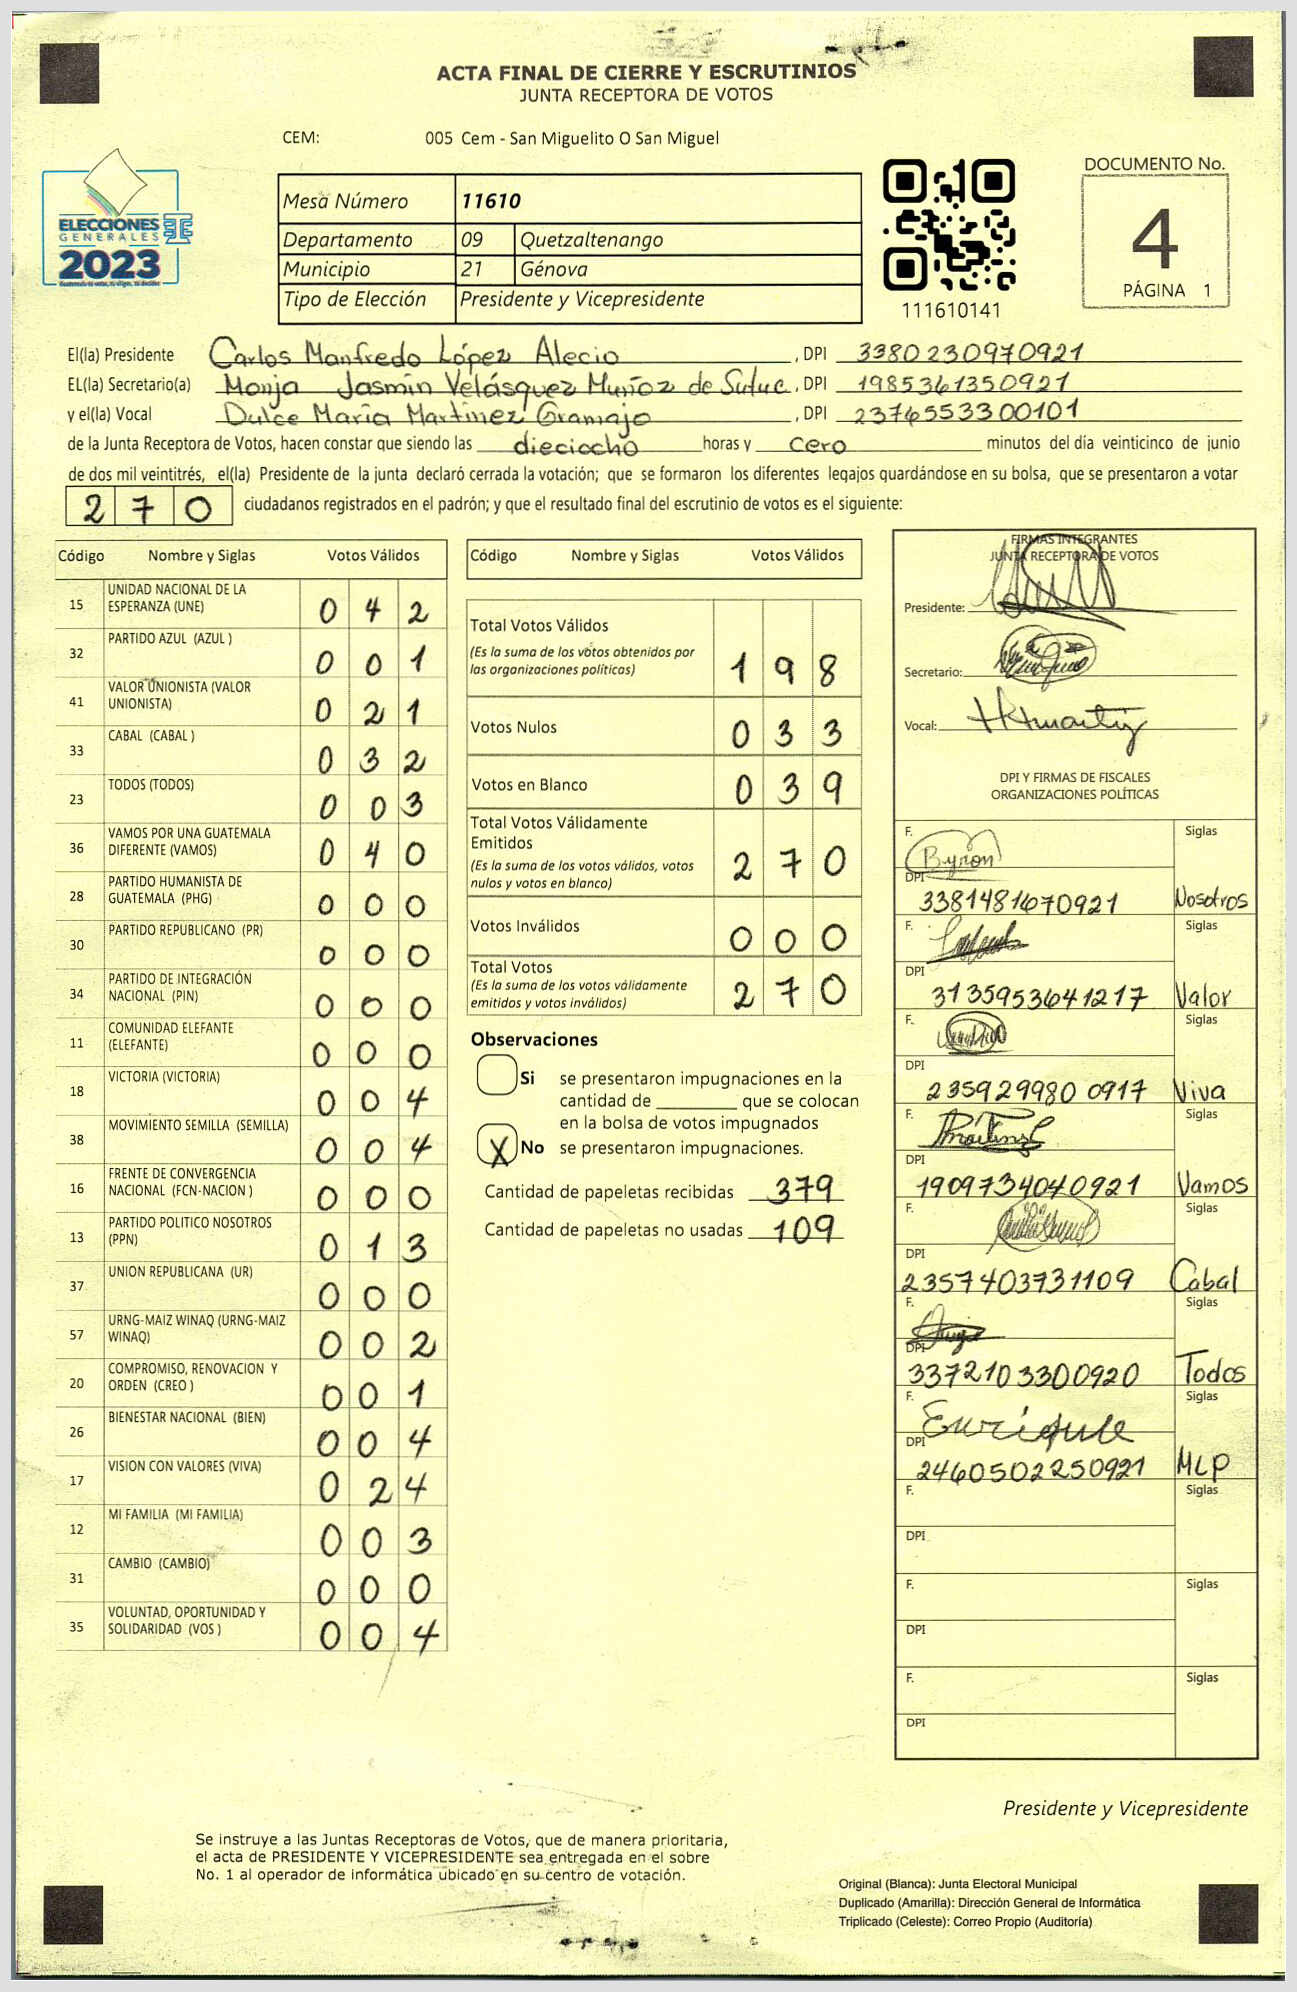 ACTA FINAL DE CIERRE Y ESCRUTINIOS
JUNTA RECEPTORA DE VOTOS
CEM: 005 Cem - San Miguelito O San Miguel
ELECCIONES
GENERALES
2023
Mesa Número 11610
Departamento 09 Quetzaltenango
Municipio 21 Génova
Tipo de Elección Presidente y Vicepresidente
111610141
DOCUMENTO No.
4
PÁGINA 1
El(la) Presidente Carlos Manfredo López Alecio, DPI 3380230970921
EL(la) Secretario(a) Monja Jasmín Velásquez Muñoz de Suluc, DPI 1985361350921
y el(la) Vocal Dulce María Martínez Gramajo, DPI 2376553300101
de la Junta Receptora de Votos, hacen constar que siendo las dieciocho horas y cero minutos del día veinticinco de junio
de dos mil veintitrés, el(la) Presidente de la junta declaró cerrada la votación; que se formaron los diferentes legajos quardándose en su bolsa, que se presentaron a votar
270 ciudadanos registrados en el padrón; y que el resultado final del escrutinio de votos es el siguiente:
Código Nombre y Siglas Votos Válidos
15 UNIDAD NACIONAL DE LA ESPERANZA (UNE) 0 4 2
32 PARTIDO AZUL (AZUL ) 0 0 1
41 VALOR UNIONISTA (VALOR UNIONISTA) 0 2 1
33 CABAL (CABAL ) 0 3 2
23 TODOS (TODOS) 0 0 3
36 VAMOS POR UNA GUATEMALA DIFERENTE (VAMOS) 0 4 0
28 PARTIDO HUMANISTA DE GUATEMALA (PHG) 0 0 0
30 PARTIDO REPUBLICANO (PR) 0 0 0
34 PARTIDO DE INTEGRACIÓN NACIONAL (PIN) 0 0 0
11 COMUNIDAD ELEFANTE (ELEFANTE) 0 0 0
18 VICTORIA (VICTORIA) 0 0 4
38 MOVIMIENTO SEMILLA (SEMILLA) 0 0 4
16 FRENTE DE CONVERGENCIA NACIONAL (FCN-NACION ) 0 0 0
13 PARTIDO POLITICO NOSOTROS (PPN) 0 1 3
37 UNION REPUBLICANA (UR) 0 0 0
57 URNG-MAIZ WINAQ (URNG-MAIZ WINAQ) 0 0 2
20 COMPROMISO, RENOVACION Y ORDEN (CREO ) 0 0 1
26 BIENESTAR NACIONAL (BIEN) 0 0 4
17 VISION CON VALORES (VIVA) 0 2 4
12 MI FAMILIA (MI FAMILIA) 0 0 3
31 CAMBIO (CAMBIO) 0 0 0
35 VOLUNTAD, OPORTUNIDAD Y SOLIDARIDAD (VOS ) 0 0 4
Código Nombre y Siglas Votos Válidos
Total Votos Válidos
(Es la suma de los votos obtenidos por
las organizaciones políticas) 1 9 8
Votos Nulos 0 3 3
Votos en Blanco 0 3 9
Total Votos Válidamente
Emitidos
(Es la suma de los votos válidos, votos
nulos y votos en blanco) 2 7 0
Votos Inválidos 0 0 0
Total Votos
(Es la suma de los votos válidamente
emitidos y votos inválidos) 2 7 0
Observaciones
Si se presentaron impugnaciones en la
cantidad de ________ que se colocan
en la bolsa de votos impugnados
X No se presentaron impugnaciones.
Cantidad de papeletas recibidas 379
Cantidad de papeletas no usadas 109
FIRMAS INTEGRANTES
JUNTA RECEPTORA DE VOTOS
Presidente:
Secretario:
Vocal:
DPI Y FIRMAS DE FISCALES
ORGANIZACIONES POLÍTICAS
F. Byron Siglas
DPI 3381481670921 Nosotros
F. Siglas
DPI 3135953641217 Valor
F. Siglas
DPI 235929980 0917 Viva
F. Siglas
DPI 1909734040921 Vamos
F. Siglas
DPI 2357403731109 Cabal
F. Siglas
DPI 3372103300920 Todos
F. Enrique Siglas
DPI 2460502250921 MLP
F. Siglas
DPI
F. Siglas
DPI
F. Siglas
DPI
Presidente y Vicepresidente
Se instruye a las Juntas Receptoras de Votos, que de manera prioritaria,
el acta de PRESIDENTE Y VICEPRESIDENTE sea entregada en el sobre
No. 1 al operador de informática ubicado en su centro de votación.
Original (Blanca): Junta Electoral Municipal
Duplicado (Amarilla): Dirección General de Informática
Triplicado (Celeste): Correo Propio (Auditoría)